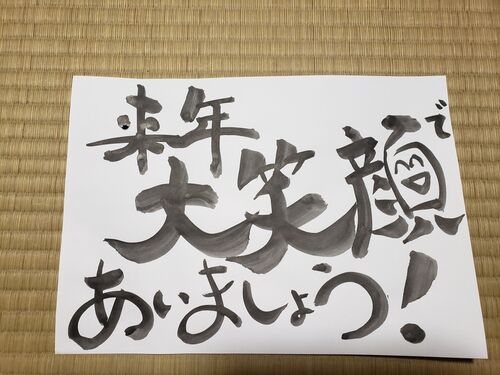 来年
大笑顔で
あいましょう!